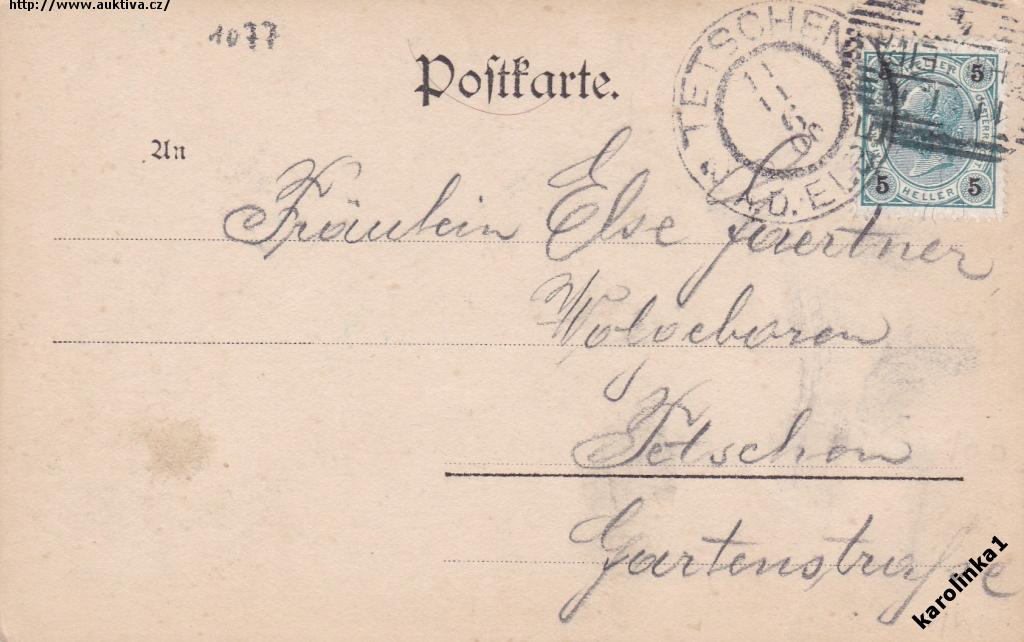 http://www.auktiva.cz/
1077
Postkarte.
TETSCHEN
A.D. ELBE
11
5 5
HELLER
5 5
An
Fräulein Else Gaertner
Wolgeboren
Tetschen
Gartenstraße
karolinka1